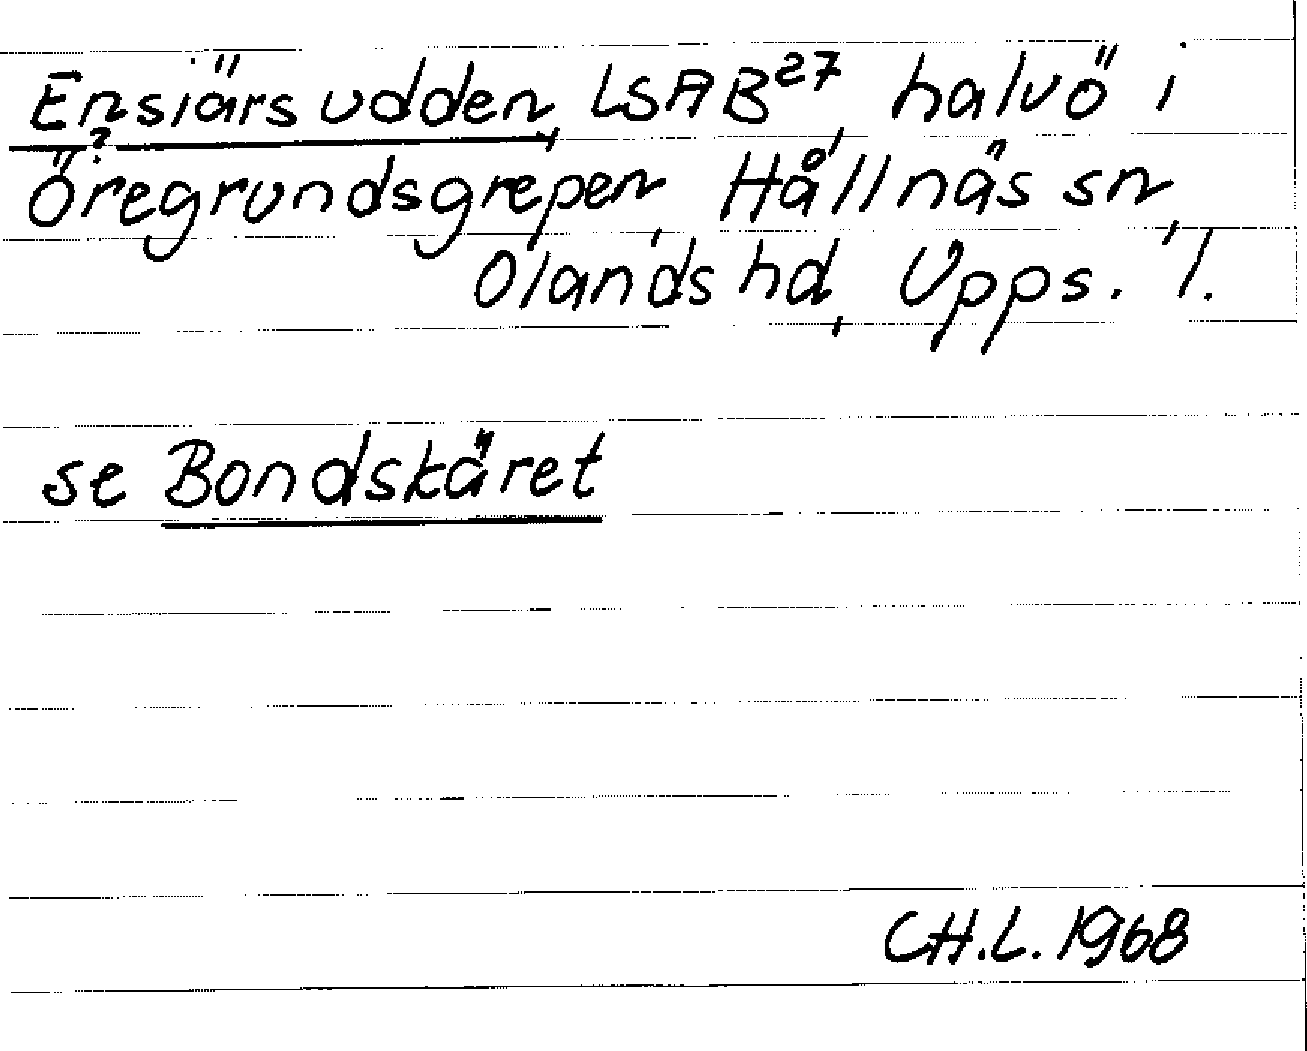 Ensiärsudden, LSAB27, halvö i
?
Öregrundsgrepen, Hållnäs sn,
Olands hd, Upps. l.
se Bondskäret
CH.L. 1968